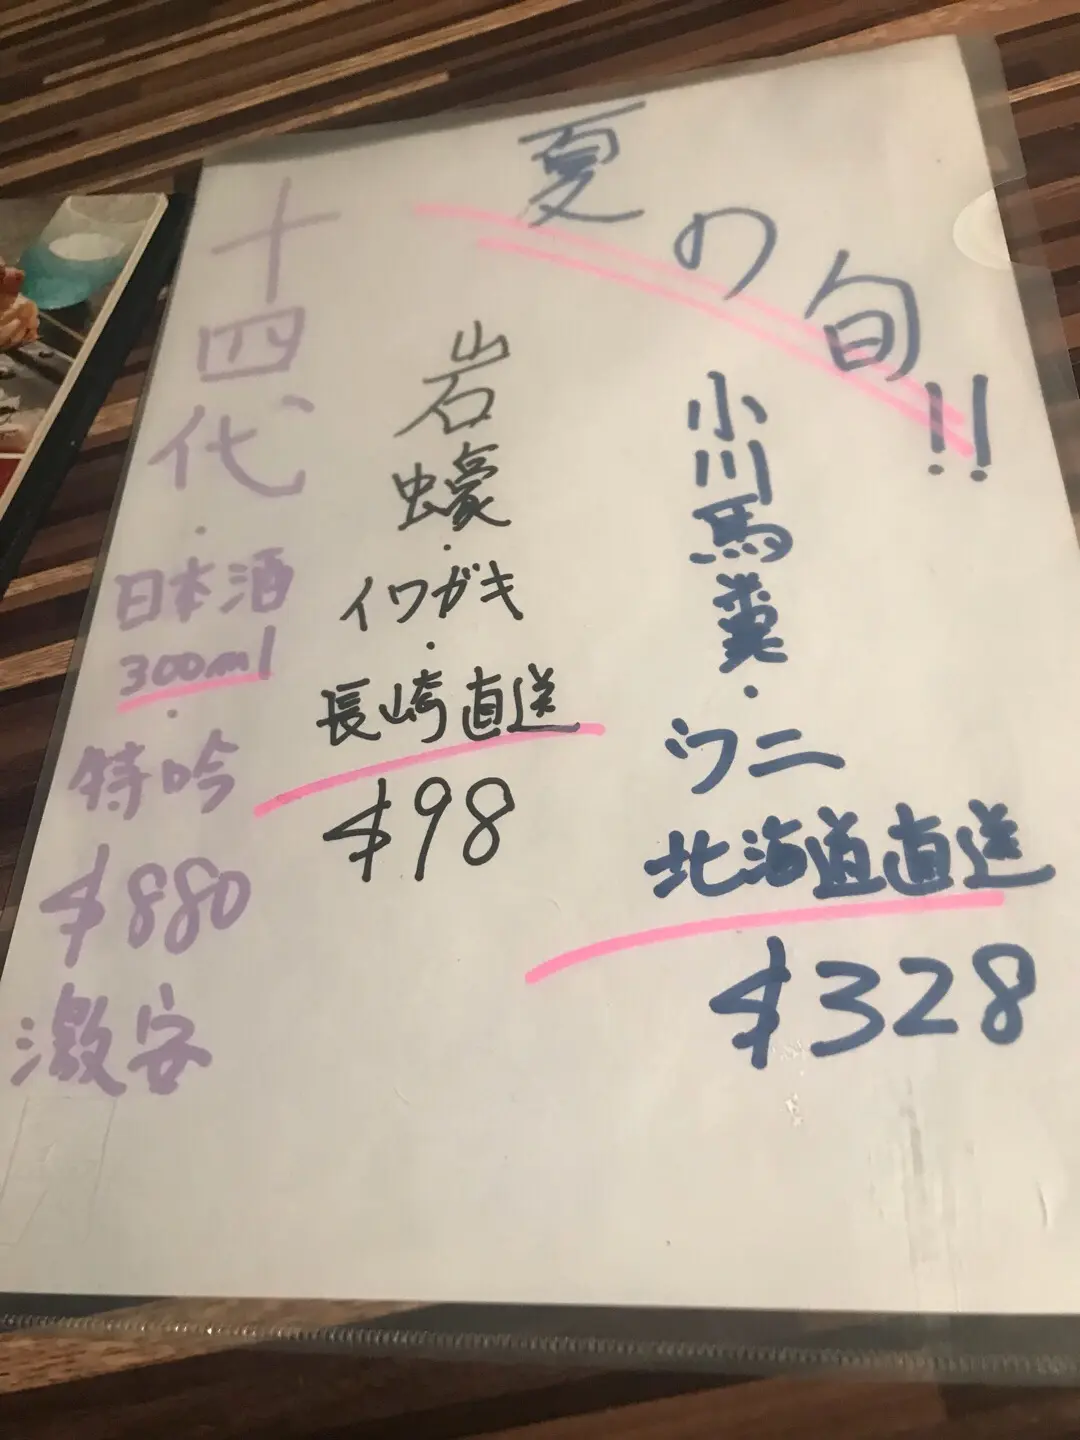 夏の旬!!
小川馬糞・ウニ
北海道直送
$328
岩蠔・イワガキ・
長崎直送
$98
十四代・
日本酒
300ml・
特吟
$880
激安